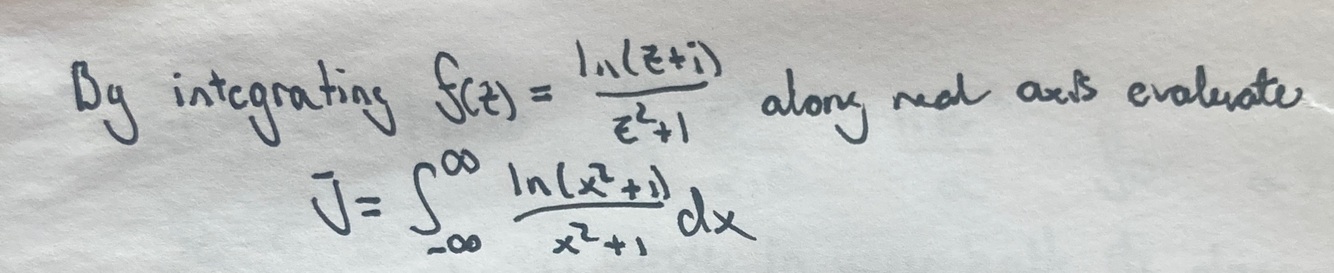 By integrating f(z) = ln(z+i)/(z²+1) along real axis evaluate
J = ∫_{-∞}^{∞} ln(x²+1)/(x²+1) dx